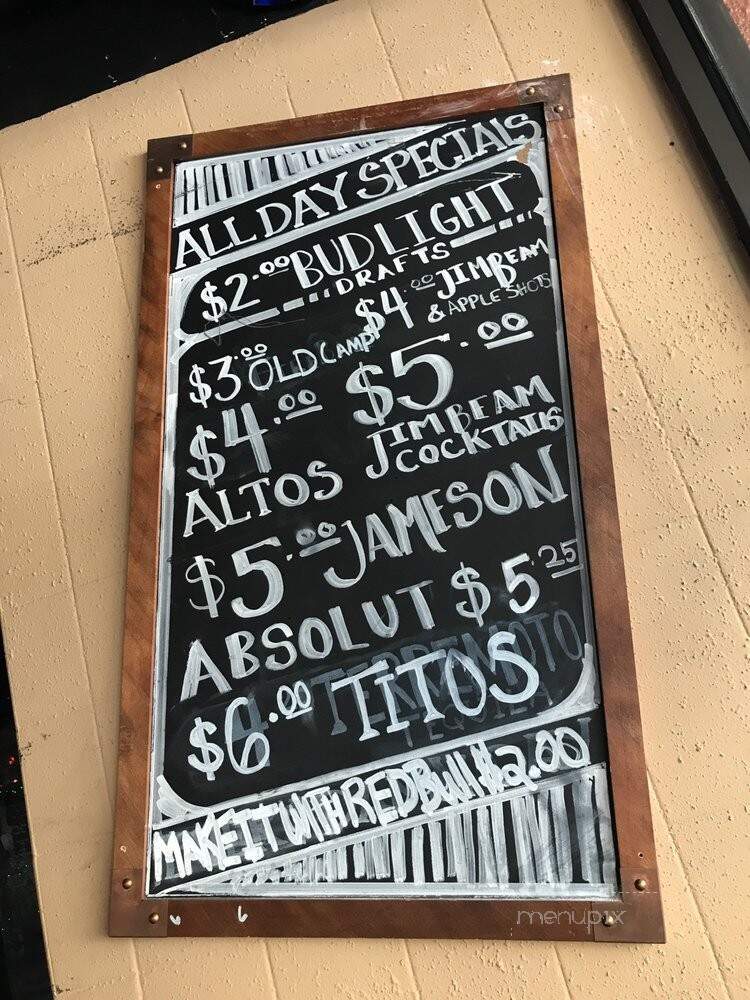 ALL DAY SPECIALS
$2.00 BUD LIGHT
DRAFTS
$4.00 JIM BEAM
& APPLE SHOTS
$3.00 OLD CAMP
$4.00
ALTOS
$5.00
JIM BEAM
COCKTAILS
$5.00 JAMESON
ABSOLUT $5.25
$6.00 TITOS
TERREMOTO
TEQUILA
MAKE IT WITH RED Bull $2.00
menupix